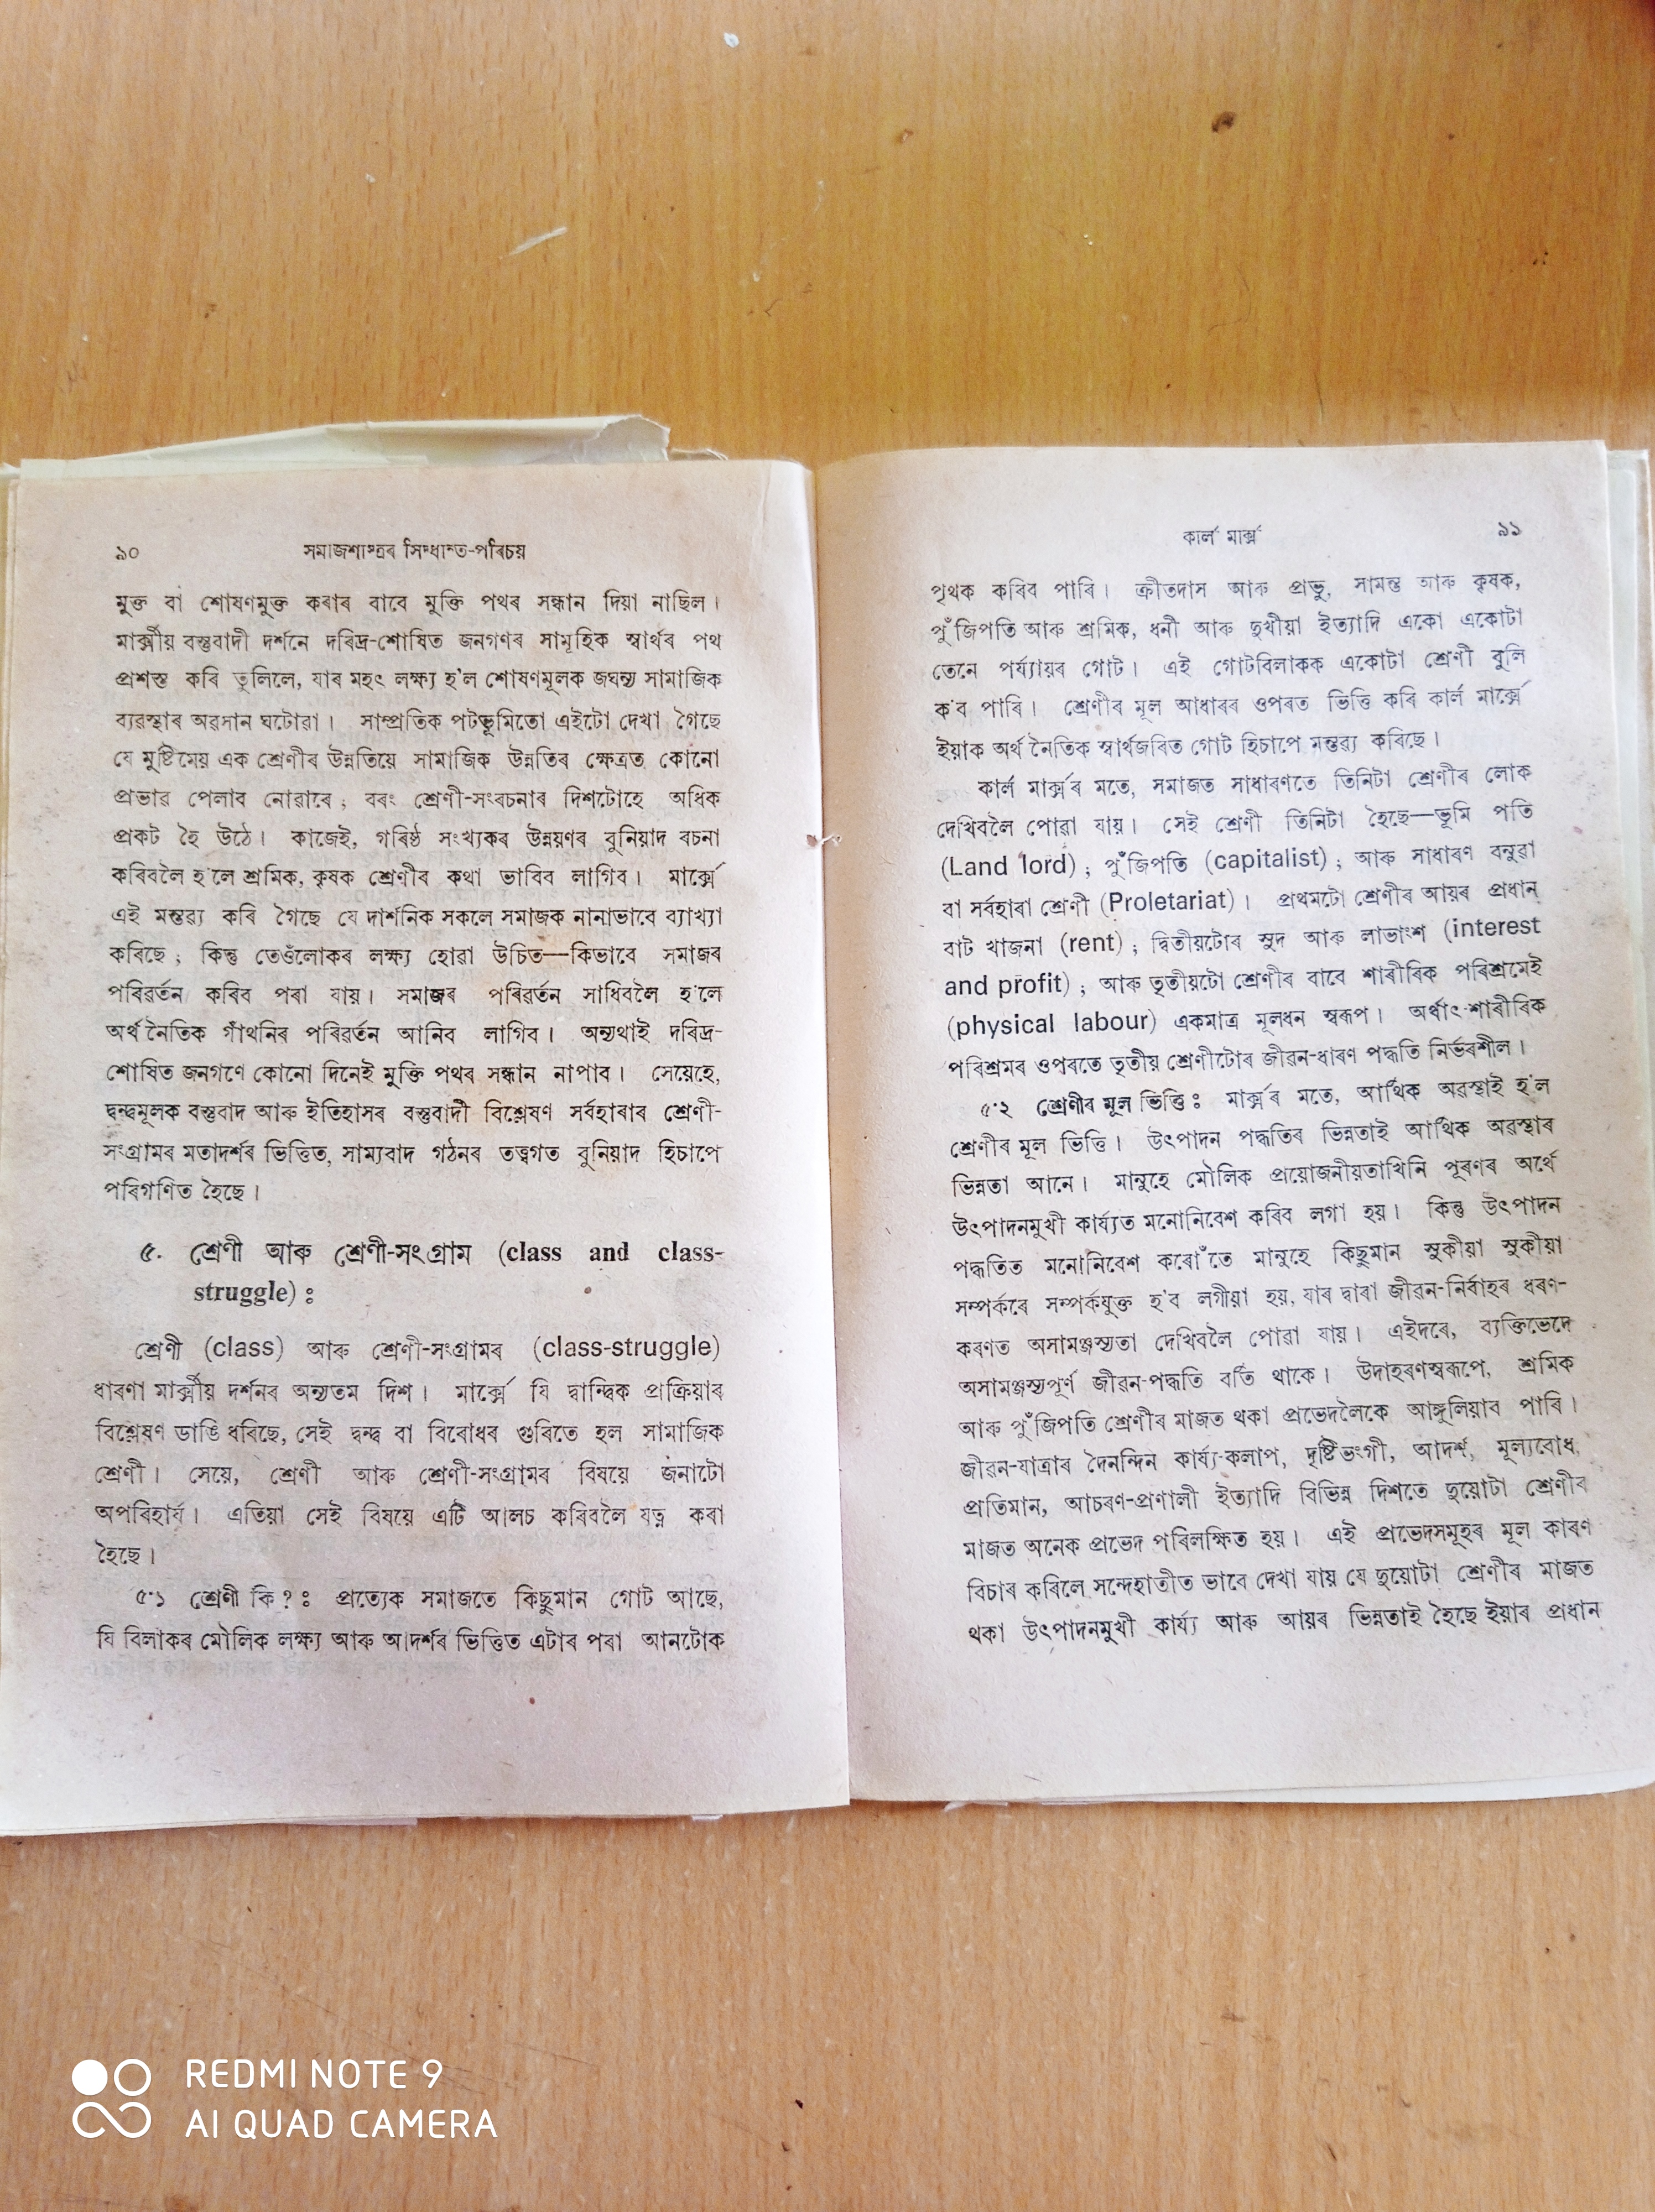 ৯০ সমাজশাস্ত্ৰৰ সিদ্ধান্ত-পৰিচয়
মুক্ত বা শোষণমুক্ত কৰাৰ বাবে মুক্তি পথৰ সন্ধান দিয়া নাছিল।
মাৰ্ক্সীয় বস্তুবাদী দৰ্শনে দৰিদ্ৰ-শোষিত জনগণৰ সামূহিক স্বাৰ্থৰ পথ
প্ৰশস্ত কৰি তুলিলে, যাৰ মহৎ লক্ষ্য হ'ল শোষণমূলক জঘন্য সামাজিক
ব্যৱস্থাৰ অৱসান ঘটোৱা। সাম্প্ৰতিক পটভূমিতো এইটো দেখা গৈছে
যে মুষ্টিমেয় এক শ্ৰেণীৰ উন্নতিয়ে সামাজিক উন্নতিৰ ক্ষেত্ৰত কোনো
প্ৰভাৱ পেলাব নোৱাৰে ; বৰং শ্ৰেণী-সংৰচনাৰ দিশটোহে অধিক
প্ৰকট হৈ উঠে। কাজেই, গৰিষ্ঠ সংখ্যকৰ উন্নয়ণৰ বুনিয়াদ ৰচনা
কৰিবলৈ হ'লে শ্ৰমিক, কৃষক শ্ৰেণীৰ কথা ভাবিব লাগিব। মাৰ্ক্সে
এই মন্তব্য কৰি গৈছে যে দাৰ্শনিক সকলে সমাজক নানাভাবে ব্যাখ্যা
কৰিছে ; কিন্তু তেওঁলোকৰ লক্ষ্য হোৱা উচিত—কিভাবে সমাজৰ
পৰিৱৰ্তন কৰিব পৰা যায়। সমাজৰ পৰিৱৰ্তন সাধিবলৈ হ'লে
অৰ্থনৈতিক গাঁথনিৰ পৰিৱৰ্তন আনিব লাগিব। অন্যথাই দৰিদ্ৰ-
শোষিত জনগণে কোনো দিনেই মুক্তি পথৰ সন্ধান নাপাব। সেয়েহে,
দ্বন্দ্বমূলক বস্তুবাদ আৰু ইতিহাসৰ বস্তুবাদী বিশ্লেষণ সৰ্বহাৰাৰ শ্ৰেণী-
সংগ্ৰামৰ মতাদৰ্শৰ ভিত্তিত, সাম্যবাদ গঠনৰ তত্ত্বগত বুনিয়াদ হিচাপে
পৰিগণিত হৈছে।
৫. শ্ৰেণী আৰু শ্ৰেণী-সংগ্ৰাম (class and class-
struggle) ঃ
শ্ৰেণী (class) আৰু শ্ৰেণী-সংগ্ৰামৰ (class-struggle)
ধাৰণা মাৰ্ক্সীয় দৰ্শনৰ অন্যতম দিশ। মাৰ্ক্সে যি দ্বান্দ্বিক প্ৰাক্ৰিয়াৰ
বিশ্লেষণ ডাঙি ধৰিছে, সেই দ্বন্দ্ব বা বিৰোধৰ গুৰিতে হল সামাজিক
শ্ৰেণী। সেয়ে, শ্ৰেণী আৰু শ্ৰেণী-সংগ্ৰামৰ বিষয়ে জনাটো
অপৰিহাৰ্য। এতিয়া সেই বিষয়ে এটি আলচ কৰিবলৈ যত্ন কৰা
হৈছে।
৫·১ শ্ৰেণী কি ? ঃ প্ৰত্যেক সমাজতে কিছুমান গোট আছে,
যি বিলাকৰ মৌলিক লক্ষ্য আৰু আদৰ্শৰ ভিত্তিত এটাৰ পৰা আনটোক
কাৰ্ল মাৰ্ক্স ৯১
পৃথক কৰিব পাৰি। ক্ৰীতদাস আৰু প্ৰভু, সামন্ত আৰু কৃষক,
পুঁজিপতি আৰু শ্ৰমিক, ধনী আৰু দুখীয়া ইত্যাদি একো একোটা
তেনে পৰ্য্যায়ৰ গোট। এই গোটবিলাকক একোটা শ্ৰেণী বুলি
ক'ব পাৰি। শ্ৰেণীৰ মূল আধাৰৰ ওপৰত ভিত্তি কৰি কাৰ্ল মাৰ্ক্সে
ইয়াক অৰ্থনৈতিক স্বাৰ্থজৰিত গোট হিচাপে মন্তব্য কৰিছে।
কাৰ্ল মাৰ্ক্সৰ মতে, সমাজত সাধাৰণতে তিনিটা শ্ৰেণীৰ লোক
দেখিবলৈ পোৱা যায়। সেই শ্ৰেণী তিনিটা হৈছে—ভূমি পতি
(Land lord) ; পুঁজিপতি (capitalist) ; আৰু সাধাৰণ বনুৱা
বা সৰ্বহাৰা শ্ৰেণী (Proletariat)। প্ৰথমটো শ্ৰেণীৰ আয়ৰ প্ৰধান
বাট খাজনা (rent) ; দ্বিতীয়টোৰ সুদ আৰু লাভাংশ (interest
and profit) ; আৰু তৃতীয়টো শ্ৰেণীৰ বাবে শাৰীৰিক পৰিশ্ৰমেই
(physical labour) একমাত্ৰ মূলধন স্বৰূপ। অৰ্থাৎ শাৰীৰিক
পৰিশ্ৰমৰ ওপৰতে তৃতীয় শ্ৰেণীটোৰ জীৱন-ধাৰণ পদ্ধতি নিৰ্ভৰশীল।
৫·২ শ্ৰেণীৰ মূল ভিত্তি ঃ মাৰ্ক্সৰ মতে, আৰ্থিক অৱস্থাই হ'ল
শ্ৰেণীৰ মূল ভিত্তি। উৎপাদন পদ্ধতিৰ ভিন্নতাই আৰ্থিক অৱস্থাৰ
ভিন্নতা আনে। মানুহে মৌলিক প্ৰয়োজনীয়তাখিনি পূৰণৰ অৰ্থে
উৎপাদনমুখী কাৰ্য্যত মনোনিবেশ কৰিব লগা হয়। কিন্তু উৎপাদন
পদ্ধতিত মনোনিবেশ কৰোঁতে মানুহে কিছুমান সুকীয়া সুকীয়া
সম্পৰ্কৰে সম্পৰ্কযুক্ত হ'ব লগীয়া হয়, যাৰ দ্বাৰা জীৱন-নিৰ্বাহৰ ধৰণ-
কৰণত অসামঞ্জস্যতা দেখিবলৈ পোৱা যায়। এইদৰে, ব্যক্তিভেদে
অসামঞ্জস্যপূৰ্ণ জীৱন-পদ্ধতি বৰ্তি থাকে। উদাহৰণস্বৰূপে, শ্ৰমিক
আৰু পুঁজিপতি শ্ৰেণীৰ মাজত থকা প্ৰভেদলৈকে আঙ্গুলিয়াব পাৰি।
জীৱন-যাত্ৰাৰ দৈনন্দিন কাৰ্য্য-কলাপ, দৃষ্টিভংগী, আদৰ্শ, মূল্যবোধ,
প্ৰতিমান, আচৰণ-প্ৰণালী ইত্যাদি বিভিন্ন দিশতে দুয়োটা শ্ৰেণীৰ
মাজত অনেক প্ৰভেদ পৰিলক্ষিত হয়। এই প্ৰভেদসমূহৰ মূল কাৰণ
বিচাৰ কৰিলে সন্দেহাতীত ভাবে দেখা যায় যে দুয়োটা শ্ৰেণীৰ মাজত
থকা উৎপাদনমুখী কাৰ্য্য আৰু আয়ৰ ভিন্নতাই হৈছে ইয়াৰ প্ৰধান
REDMI NOTE 9
AI QUAD CAMERA